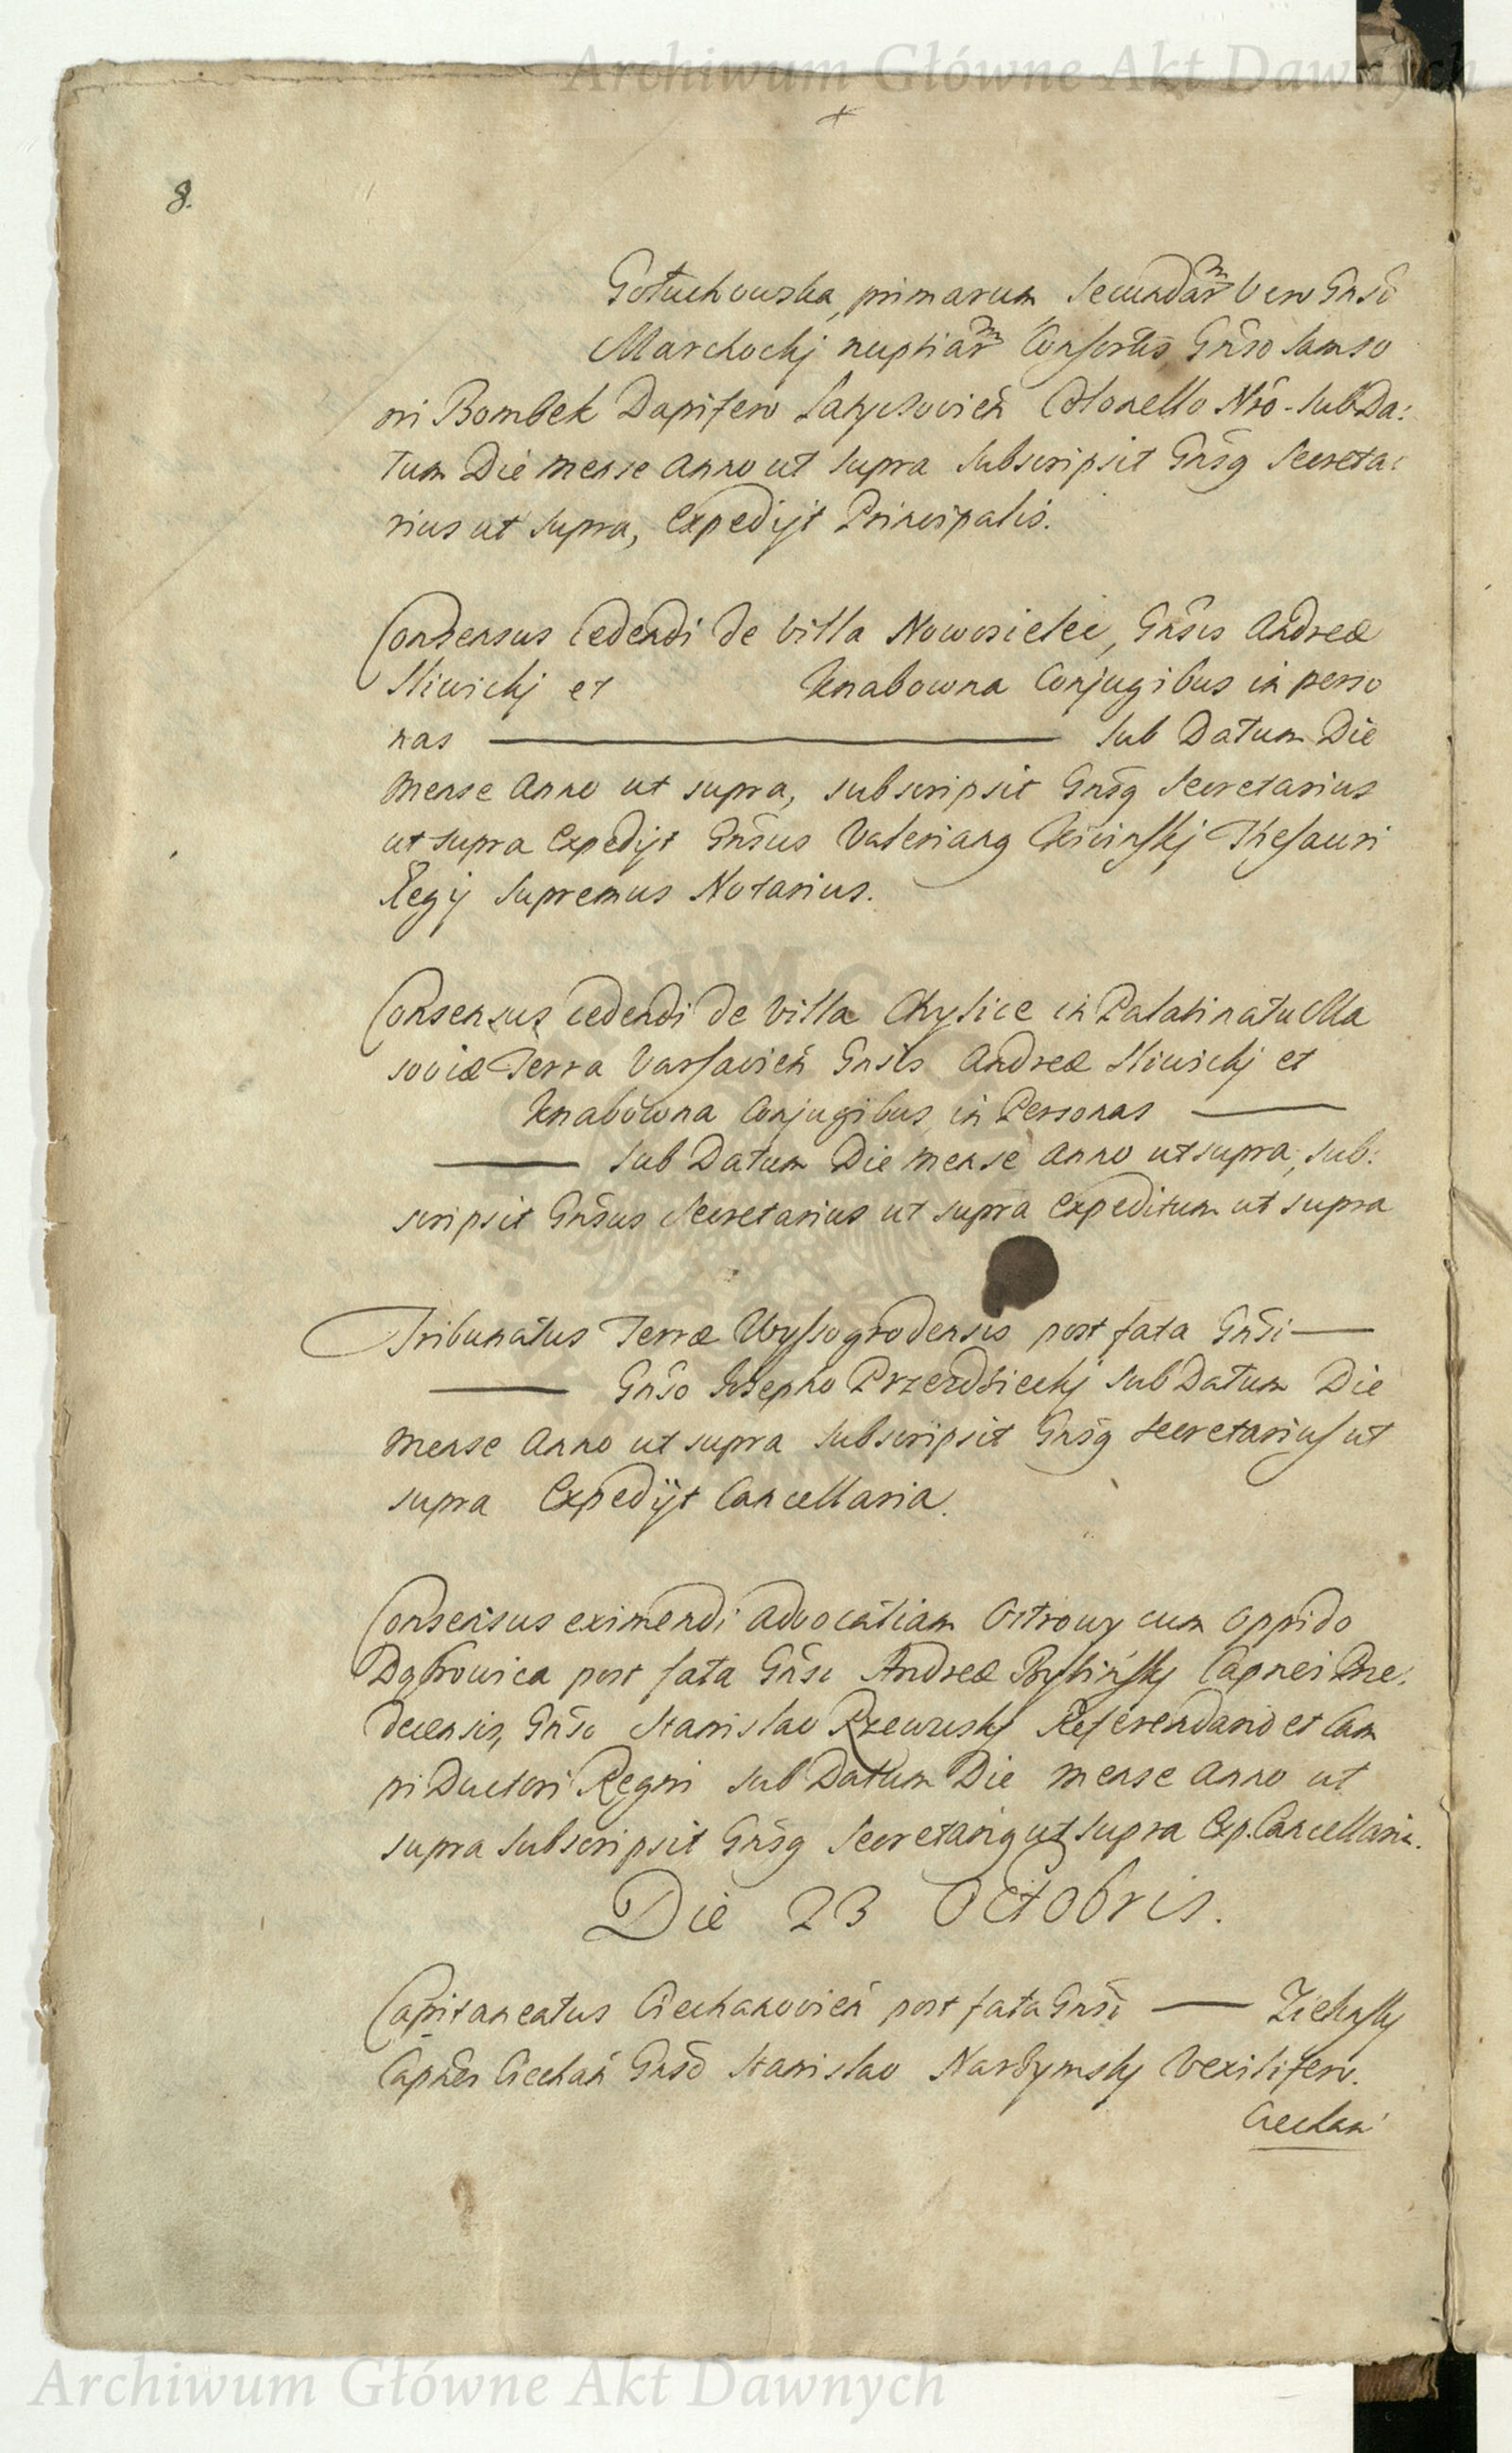 Archiwum Główne Akt Dawnych
8.
Gołuchowska, primarum Secundar͠ Vero Gnso͠
Marchockj nuptiar͠ Consortis Gn͠so Samso
ni Bombek Dapifero Colonello Nr͠o. Sub Da:
tum Die mense Anno ut supra Subscripsit Gn͠sg Secreta:
rius ut supra, Expedijt Principalis.
Consensus Cedendi de Villa Nowosielce, Gn͠sis Andreæ
Sliwickj et Knabowna Conjugibus in perso
nas ——— sub Datum Die
mense Anno ut supra, subscripsit Gn͠sg Secretarius
ut supra Expedijt Gn͠sus Valeriang Thesauri
Regij Supremus Notarius.
Consensus cedendi de Villa Chylice in Palatinatu Ma
soviæ Terra Varsavien͠ Gnsis Andreæ Sliwickj et
Knabowna Conjugibus in Personas ———
——— sub Datum Die mense Anno ut supra, sub:
scripsit Gn͠sus Secretarius ut supra Expeditum ut supra
Tribunatus Terræ Wyssogrodensis post fata Gn͠si ———
——— Gn͠so Josepho Przezdzieckj sub Datum Die
mense Anno ut supra subscripsit Gn͠sg Secretarius ut
supra Expedijt Cancellaria.
Consensus eximendi Advocatiam Ostrowy cum Oppido
Dąbrowica post fata Gn͠si Andreæ Capnei Prze:
decensis, Gn͠so Stanislao Rzewuskj Referendario et Cam
pi Ductori Regni sub Datum Die mense Anno ut
supra subscripsit Gn͠sg Secretarig ut supra Exp. Cancellaria.
Die 23 Octobris.
Capitaneatus Ciechanovien͠ post fata Gn͠si ——— Zielinskj
Capnei Ciechan͠ Gn͠so Stanislao Nardymskj Vexilifero.
Ciechan͠
Archiwum Główne Akt Dawnych